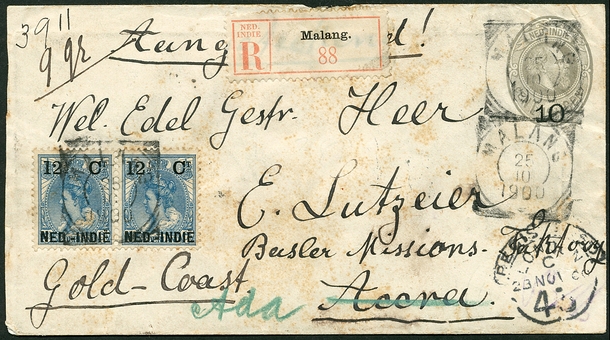 3911
992
Aang
NED.
INDIE
R
Malang.
88
NED.INDIE
10
MALANG
25
10
1900
Wel. Edel Gestr. Heer
12½ Ct 12½ Ct
NED.-INDIE NED.-INDIE
E. Lutzeier
Basler Missions-Factory
Gold-Coast
Ada Accra
28 NO
43